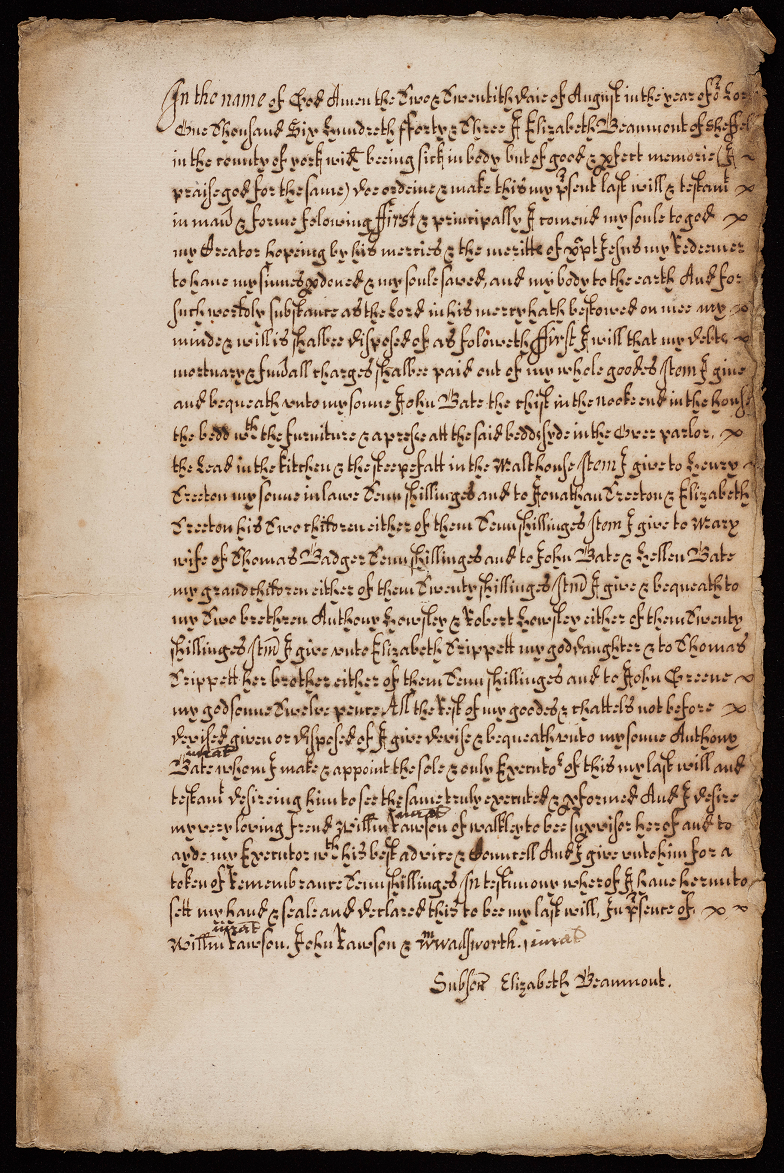 In the name of God Amen the Two & Twentith daie of August in the year of or Lor
One Thousand Six Hundreth fforty & Three I Elizabeth Beaumont of Sheffel
in the county of york wid beeing sick in body but of good & pfect memorie (I
praise god for the same) doe ordeine & make this my psent last will & testamt
in mañ & forme folowing ffirst & principally I comend my soule to god
my Creator hopeing by his mercies & the meritts of xpt Jesus my Redeemer
to have my sinnes pdoned & my soule saved, and my body to the earth And for
such worldly substance as the Lord in his mercy hath bestowed on mee my
minde & will is shalbee disposed of as foloweth ffirst I will that my debts
mortuary & funall charges shalbee paid out of my whole goodes Itom I give
and bequeath unto my sonne John Bate the chist in the nooke end in the house
the bedd wth the furniture & a presse att the said bedd syde in the Over parlor,
the Lead in the kitchen & the steepefatt in the Malthouse Itom I give to Henry
Treeton my sonne in lawe Tenn shillinges and to Jonathan Treeton & Elizabeth
Treeton his Two children either of them Tenn shillinges Itom I give to Mary
wife of Thomas Badger Tenn shillinges and to John Bate & Hellen Bate
my grandchildren either of them Twenty shillinges Itm I give & bequeath to
my Two brethren Anthony Howsley & Robert Howsley either of them Twenty
shillinges Itm I give unto Elizabeth Trippett my goddaughter & to Thomas
Trippett her brother either of them Tenn shillinges and to John Greene
my godsonne Twelve pence All the Rest of my goodes & chattels not before
devised given or disposed of I give devise & bequeath unto my sonne Anthony
jurat
Bate whom I make & appoint the sole & only Executor of this my last will and
testamt desireing him to see the same truly executed & pformed And I desire
jurat
my very loving frend Willm Rawson of walkley to bee supvisor herof and to
ayde my Executor wth his best advice & Councell And I give unto him for a
token of Remembrance Tenn shillinges In testimony wherof I have herunto
sett my hand & seale and declared this to bee my last will, In psence of.
jurat
Willm Rawson. John Rawson & Wadsworth. jurat
Subscr Elizabeth Beaumont.